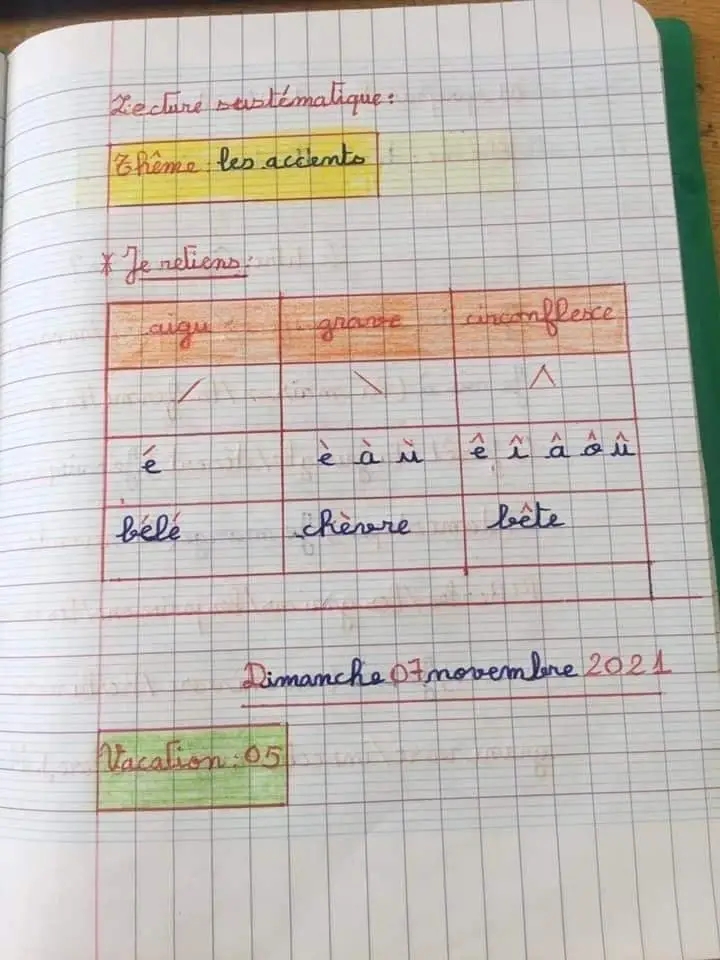 Lecture systématique:
Thême: les accents
* Je retiens:
aigu grave circonflexe
/ \ ^
é è à ù ê î â ô û
bélé chèvre bête
Dimanche 07 novembre 2021
Vacation: 05